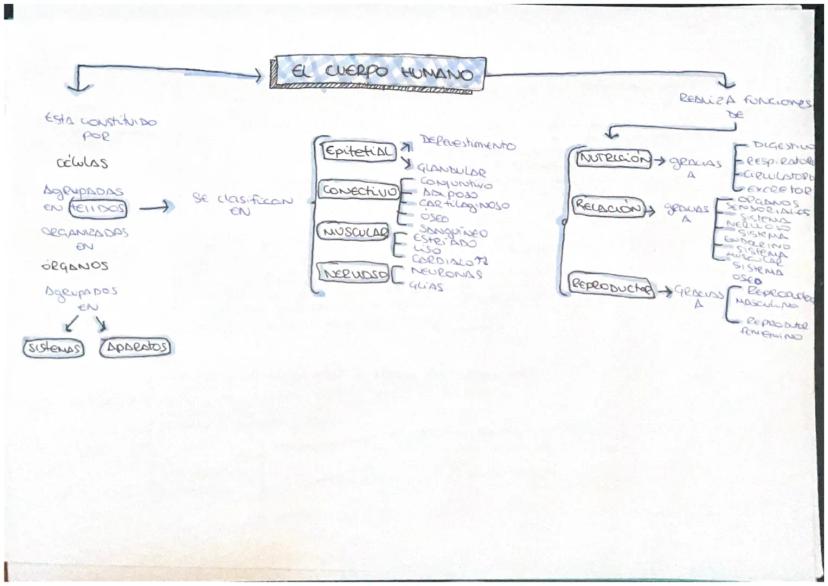 EL CUERPO HUMANO
ESTÁ CONSTITUIDO
POR
CÉLULAS
AGRUPADAS
EN TEJIDOS
ORGANIZADAS
EN
ÓRGANOS
AGRUPADOS
EN
SISTEMAS
APARATOS
SE CLASIFICAN
EN
EPITETIAL
DEREVESTIMENTO
GLANDULAR
CONECTIVO
CONJUNTIVO
ADIPOSO
CARTILAGINOSO
ÓSEO
SANGUÍNEO
MUSCULAR
ESTRIADO
LISO
NERVIOSO
NEURONAS
GLÍAS
REALIZA FUNCIONES
DE
NUTRICIÓN
GRACIAS
A
DIGESTIVO
RESPIRATORIO
CIRCULATORIO
EXCRETOR
RELACIÓN
GRACIAS
A
ÓRGANOS
SENSORIALES
SISTEMA
NERVIOSO
SISTEMA
ENDOCRINO
SISTEMA
MUSCULAR
SISTEMA
OSEO
REPRODUCTOR
GRACIAS
A
REPRODUCTOR
MASCULINO
REPRODUTOR
FEMENINO